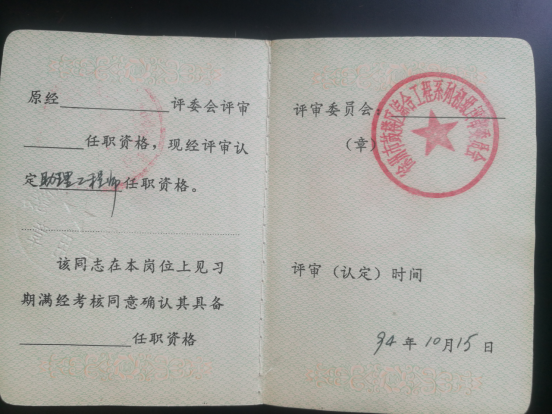 原经 评委会评审
任职资格，现经评审认
定助理工程师任职资格。
该同志在本岗位上见习
期满经考核同意确认其具备
任职资格
评审委员会：
（章）
评审（认定）时间
94 年 10 月 15 日